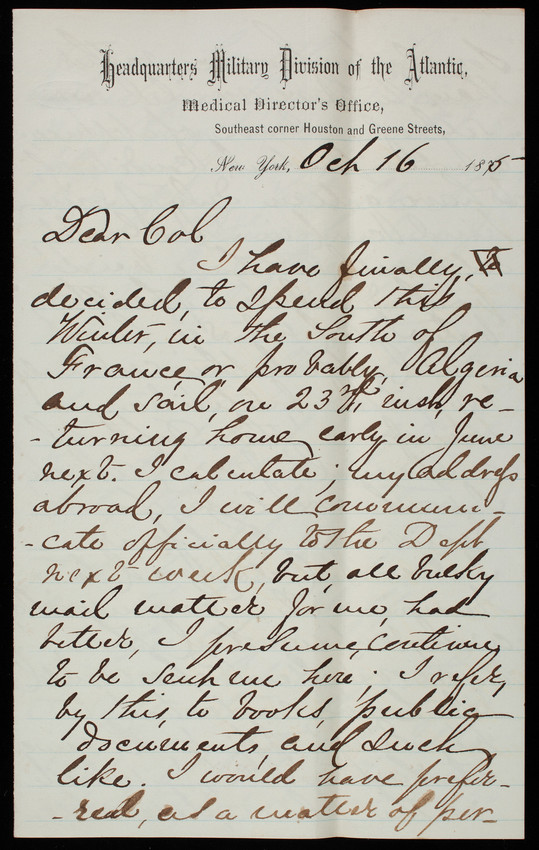 Headquarters Military Division of the Atlantic,
Medical Director's Office,
Southeast corner Houston and Greene Streets,
New York, Oct 16 1875
Dear Col
I have finally,
decided, to spend this
Winter, in the South of
France, or, probably, Algeria
and sail, on 23rd, inst, re-
-turning home, early in June
next. I calculate; my address
abroad, I will communi-
-cate officially to the Dept
next week, but, all bulky
mail matter for me, had
better, I presume, continue
to be sent me here; I refer,
by this, to books, public
documents and such
like. I would have prefer-
-red, as a matter of per-